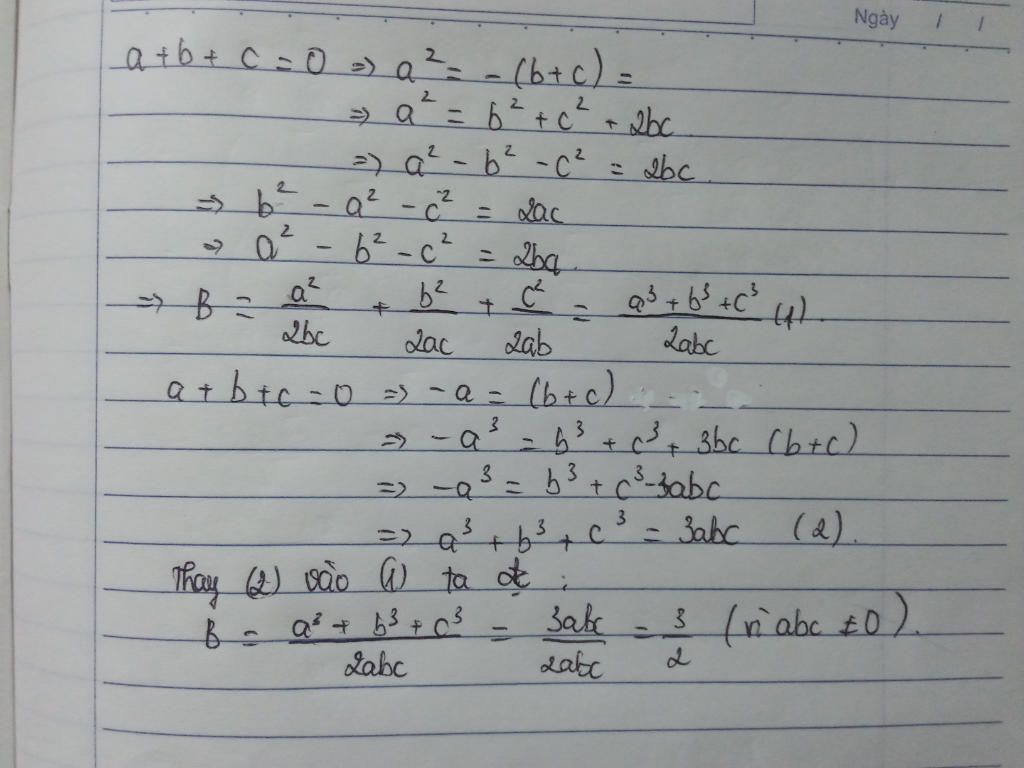 Ngày / /
a + b + c = 0 => a² = - (b + c) =
=> a² = b² + c² + 2bc
=> a² - b² - c² = 2bc.
=> b² - a² - c² = 2ac
=> a² - b² - c² = 2ba.
=> B = a²/2bc + b²/2ac + c²/2ab = (a³ + b³ + c³)/2abc (1).
a + b + c = 0 => - a = (b + c)
=> - a³ = b³ + c³ + 3bc (b + c)
=> - a³ = b³ + c³ - 3abc
=> a³ + b³ + c³ = 3abc (2).
Thay (2) vào (1) ta đc :
B = (a³ + b³ + c³)/2abc = 3abc/2abc = 3/2 (vì abc ≠ 0).